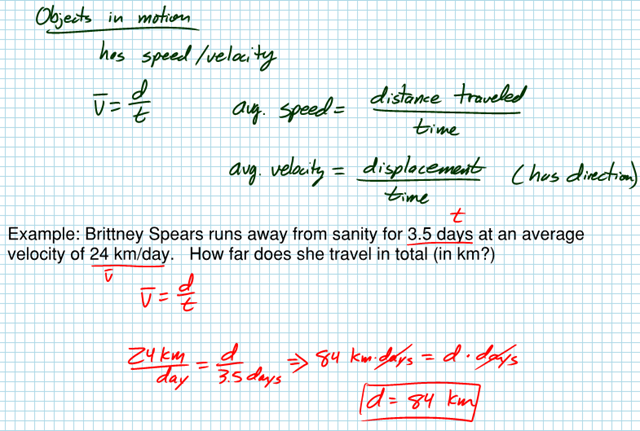 Objects in motion
has speed/velocity
v̅ = d/t
avg. speed = distance traveled / time
avg. velocity = displacement / time (has direction)
t
Example: Brittney Spears runs away from sanity for 3.5 days at an average
velocity of 24 km/day. How far does she travel in total (in km?)
v̅
v̅ = d/t
24 km/day = d/3.5 days ⇒ 84 km·days = d · days
d = 84 km